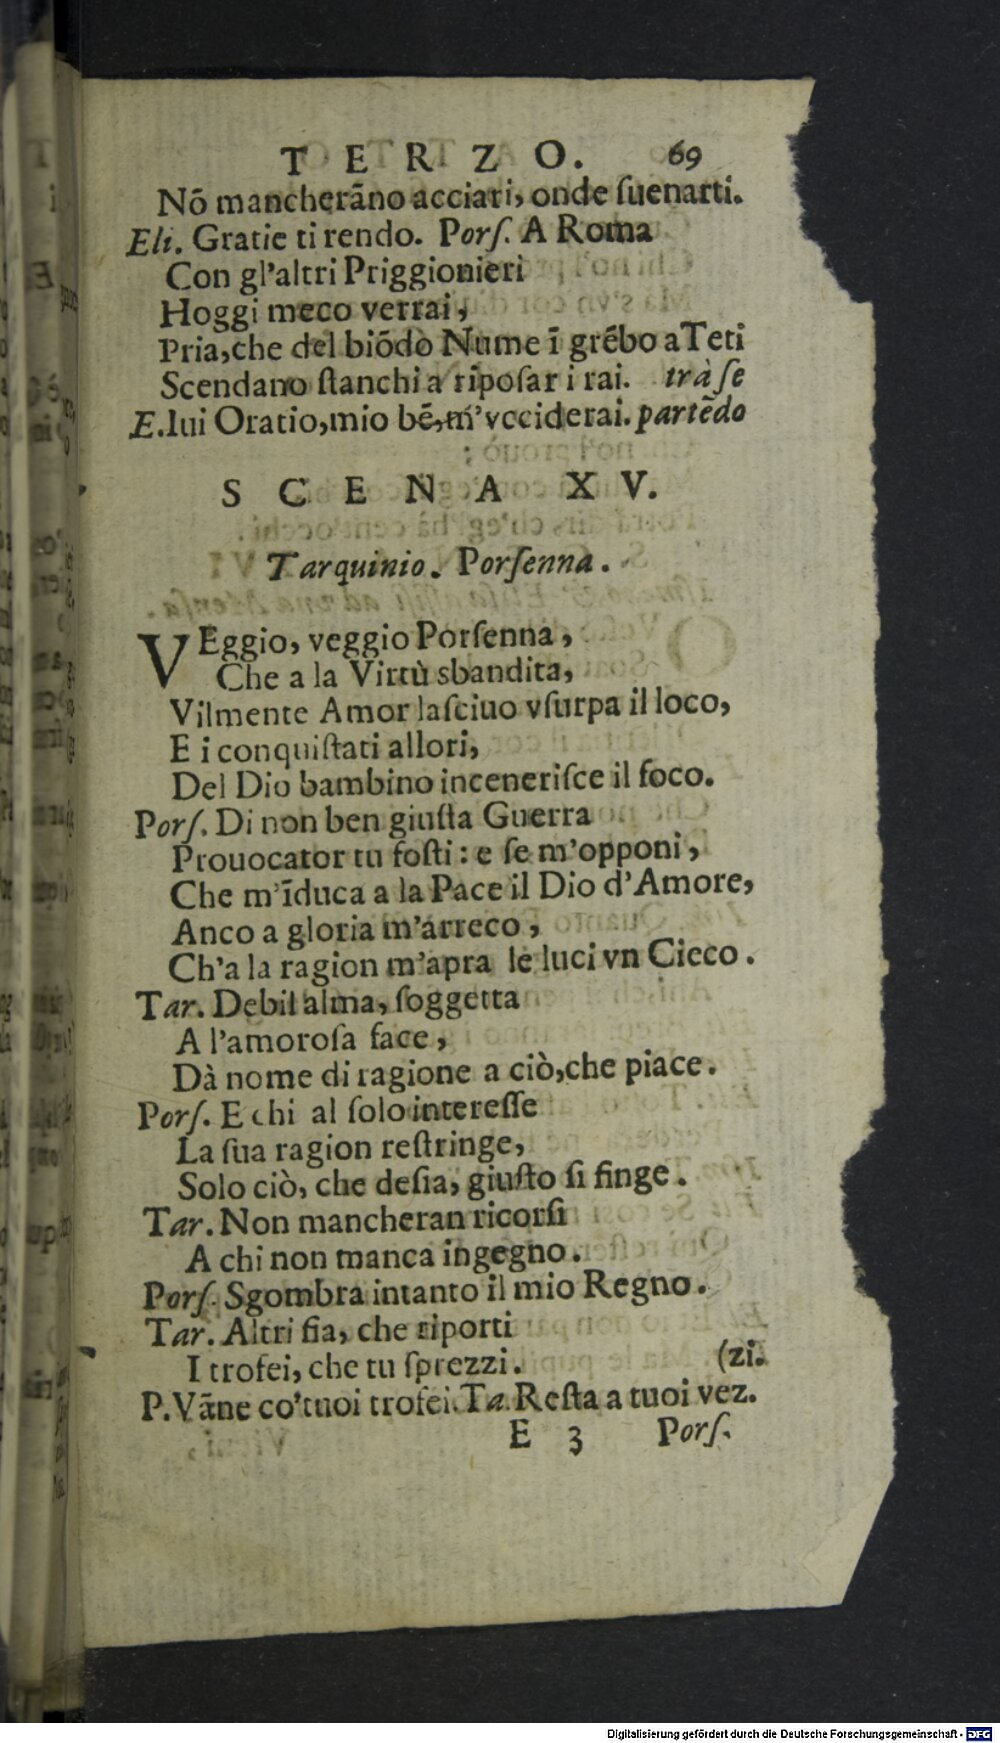 TERZO. 69
Nõ mancherãno acciari, onde ſuenarti.
Eli. Gratie ti rendo. Porſ. A Roma
Con gl'altri Priggionieri
Hoggi meco verrai,
Pria, che del biõdo Nume ĩ grẽbo a Teti
Scendano ſtanchi a ripoſar i rai. trà ſe
E. lui Oratio, mio bẽ, m'vcciderai. partẽdo
SCENA XV.
Tarquinio. Porſenna.
VEggio, veggio Porſenna,
Che a la Virtù sbandita,
Vilmente Amor laſciuo vſurpa il loco,
E i conquiſtati allori,
Del Dio bambino inceneriſce il foco.
Porſ. Di non ben giuſta Guerra
Prouocator tu foſti: e ſe m'opponi,
Che m'ĩduca a la Pace il Dio d'Amore,
Anco a gloria m'arreco,
Ch'a la ragion m'apra le luci vn Cieco.
Tar. Debil alma, ſoggetta
A l'amoroſa face,
Dà nome di ragione a ciò, che piace.
Porſ. E chi al ſolo intereſſe
La ſua ragion reſtringe,
Solo ciò, che deſia, giuſto ſi finge.
Tar. Non mancheran ricorſi
A chi non manca ingegno.
Porſ. Sgombra intanto il mio Regno.
Tar. Altri fia, che riporti
I trofei, che tu ſprezzi. (zi.
P. Vãne co'tuoi trofei. Ta. Reſta a tuoi vez.
E 3 Porſ.
Digitalisierung gefördert durch die Deutsche Forschungsgemeinschaft - DFG